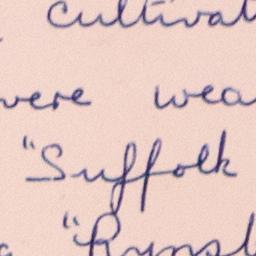 cultivat
were wea
"Suffolk